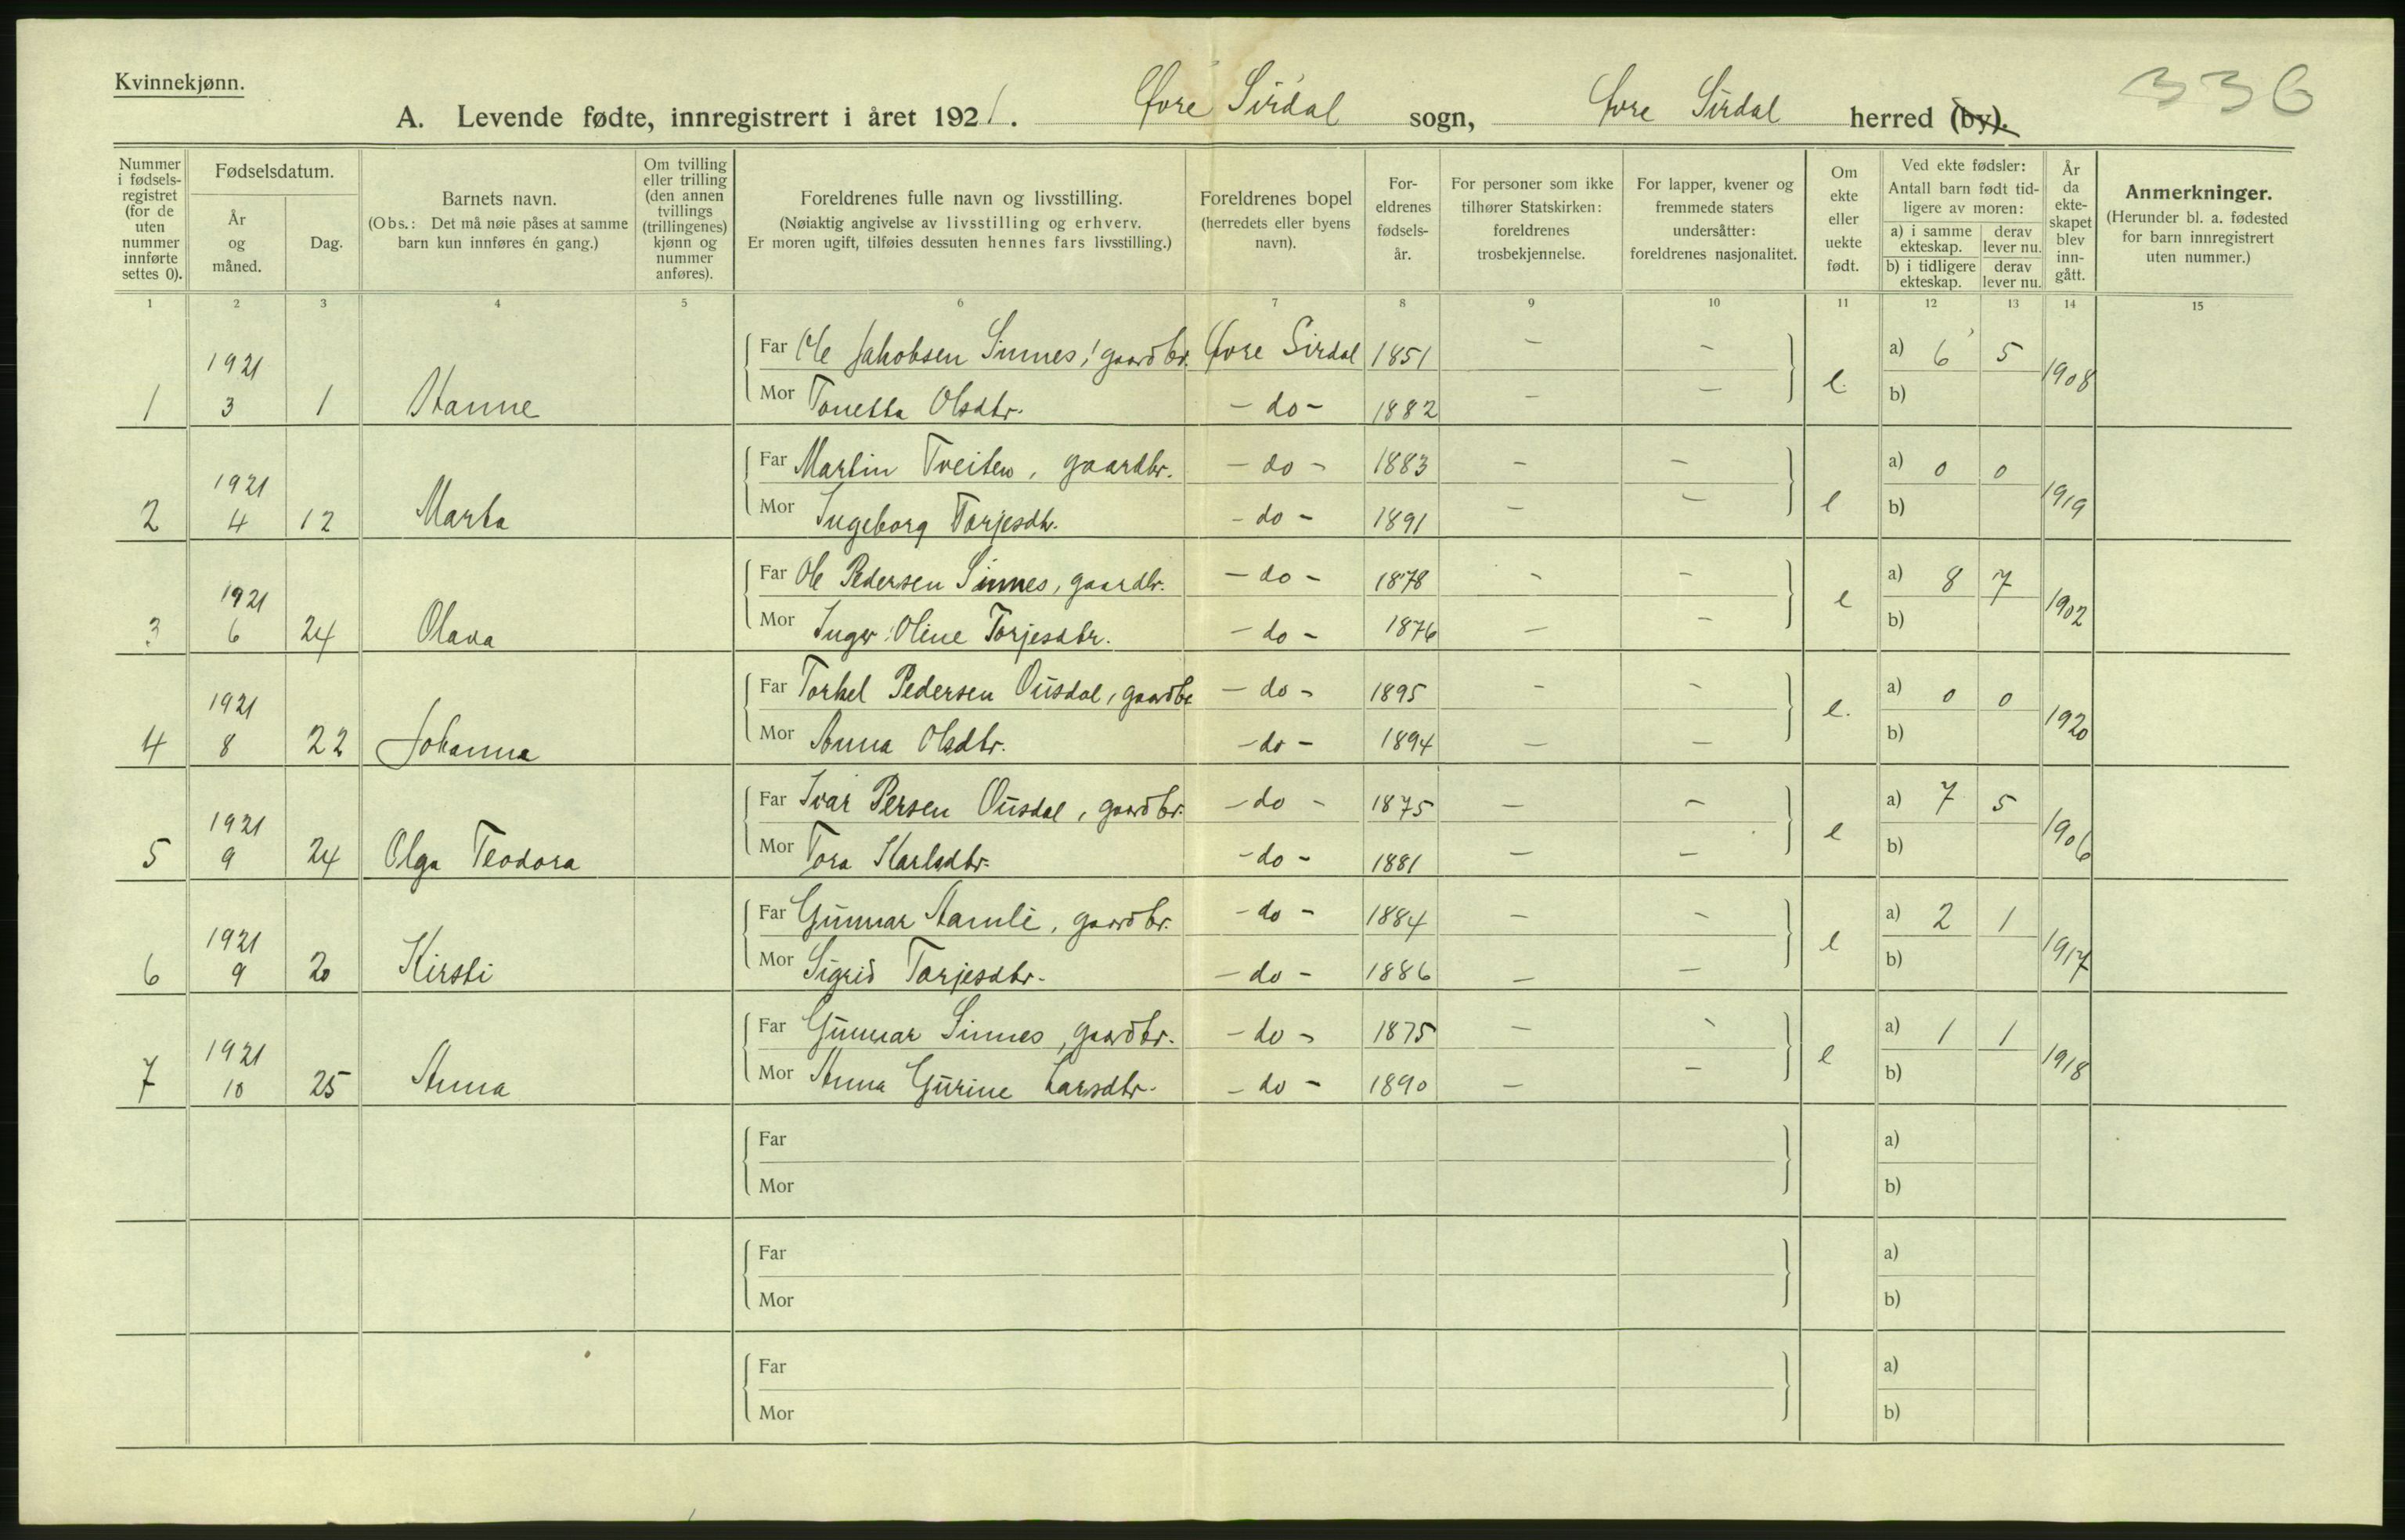 Kvinnekjønn.
336
A. Levende fødte, innregistrert i året 1921. Øvre Sirdal sogn, Øvre Sirdal herred (by).
Nummer i fødsels-registret (for de uten nummer innførte settes 0).
Fødselsdatum.
År og måned.
Dag.
Barnets navn.
(Obs.: Det må nøie påses at samme barn kun innføres én gang.)
Om tvilling eller trilling (den annen tvillings (trillingenes) kjønn og nummer anføres).
Foreldrenes fulle navn og livsstilling.
(Nøiaktig angivelse av livsstilling og erhverv.
Er moren ugift, tilføies dessuten hennes fars livsstilling.)
Foreldrenes bopel
(herredets eller byens navn).
For-eldrenes fødsels-år.
For personer som ikke tilhører Statskirken: foreldrenes trosbekjennelse.
For lapper, kvener og fremmede staters undersåtter: foreldrenes nasjonalitet.
Om ekte eller uekte født.
Ved ekte fødsler:
Antall barn født tid-ligere av moren:
a) i samme ekteskap. derav lever nu.
b) i tidligere ekteskap. derav lever nu.
År da ekte-skapet blev inn-gått.
Anmerkninger.
(Herunder bl. a. fødested for barn innregistrert uten nummer.)
1 2 3 4 5 6 7 8 9 10 11 12 13 14 15
1921 Far Ole Jakobsen Sinnes, gaardbr. Øvre Sirdal 1851 – – a) 6 5
1 3 1 Hanne Mor Tonetta Olsdtr. – do – 1882 – – e. b) 1908
1921 Far Martin Tveiten, gaardbr. – do – 1883 – – a) 0 0
2 4 12 Marta Mor Ingeborg Torjesdtr. – do – 1891 – – e b) 1919
1921 Far Ole Pedersen Sinnes, gaardbr. – do – 1878 – – a) 8 7
3 6 24 Olava Mor Inger Oline Torjesdtr. – do – 1876 – – e b) 1902
1921 Far Torkel Pedersen Ousdal, gaardbr – do – 1895 – – a) 0 0
4 8 22 Johanna Mor Anna Olsdtr. – do – 1894 – – e. b) 1920
1921 Far Ivar Persen Ousdal, gaardbr. – do – 1875 – – a) 7 5
5 9 24 Olga Teodora Mor Tora Karlsdtr. – do – 1881 – – e b) 1906
1921 Far Gunnar Hamli, gaardbr. – do – 1884 – – a) 2 1
6 9 20 Kirsti Mor Sigrid Torjesdtr. – do – 1886 – – e b) 1917
1921 Far Gunnar Sinnes, gaardbr. – do – 1875 – – a) 1 1
7 10 25 Anna Mor Anna Gurine Larsdtr. – do – 1890 – – e b) 1918
Far a)
Mor b)
Far a)
Mor b)
Far a)
Mor b)